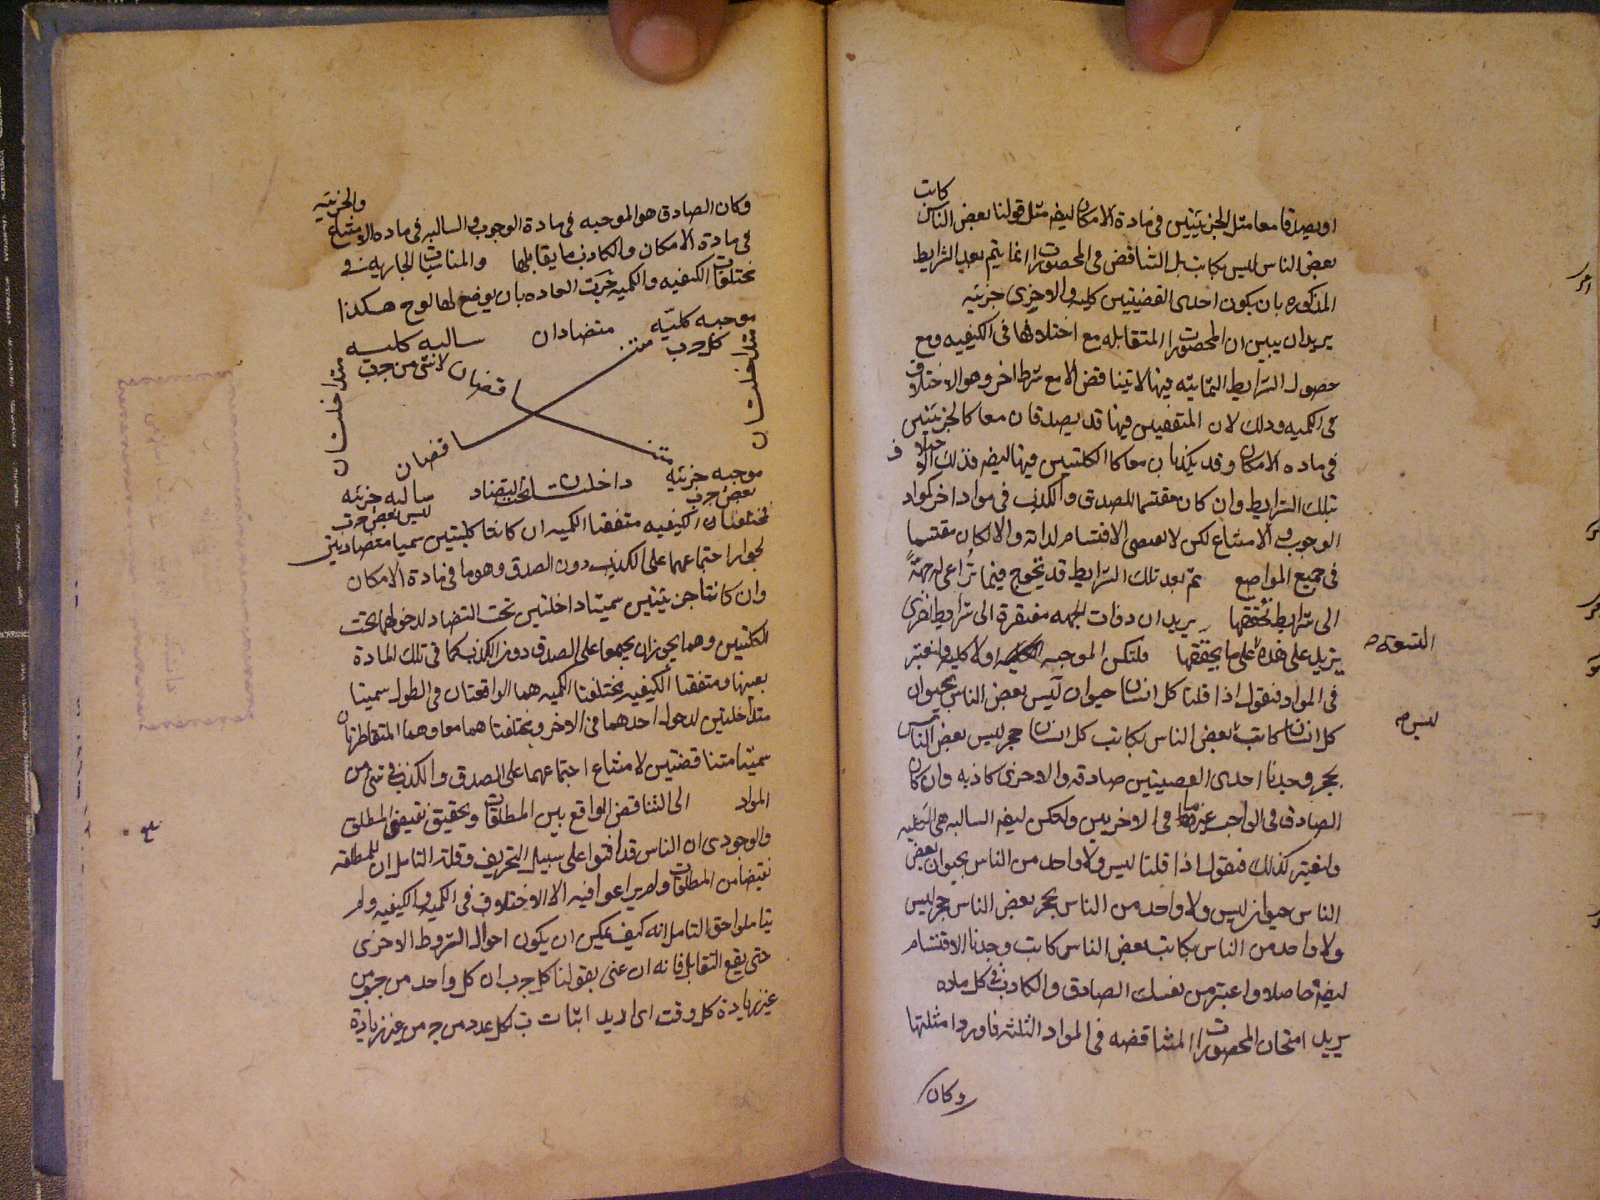 كاتب
او يصدقا معا مثل الجزئيتين فى مادة الامكان ايضا مثل قولنا بعض الناس
بعض الناس ليس بكاتب بل التناقض فى المحصورات انما يتم بعد الشرايط
المذكوره بان يكون احدى القضيتين كليه والاخرى جزئيه
يريد ان يبين ان المحصورات المتقابله مع اختلافها فى الكيفيه ومع
حصول الشرايط الثمانيه فيها لا تتناقض الا مع شرط اخر وهو الاختلاف
فى الكميه وذلك لان المتفقتين فيها قد يصدقان معا كالجزئيتين
فى ماده الامكان وقد يكذبان معا كالكليتين فيها ايضا
بتلك الشرايط وان كان مقتسما للصدق والكذب فى مواد اخر كمواد
الوجوب والامتناع لكن لا يقتضى الاقتسام لذاته والا لكان مقتسما
فى جميع المواضع ثم بعد تلك الشرايط قد تحوج فيما تراعى له جهة
الى شرايط تحققها يريد ان ذوات الجهه مفتقرة الى شرايط اخرى
يزيد على هذه على ما يحققها فلتكن الموجبه اولا كليه ولنعتبر
فى المواد فنقول اذا قلنا كل انسان حيوان ليس بعض الناس بحيوان
كل انسان كاتب بعض الناس بكاتب كل انسان حجر ليس بعض الناس
ليس
بحجر وجدنا احدى القضيتين صادقه والاخرى كاذبه وان كان
الصادق فى الواجب غير ما فى الاخريين ولتكن ايضا السالبه هى الكليه
ولنعتبر كذلك فنقول اذا قلنا ليس ولا واحد من الناس بحيوان بعض
الناس حيوان ليس ولا واحد من الناس بحجر بعض الناس حجر ليس
ولا واحد من الناس بكاتب بعض الناس كاتب وجدنا الاقتسام
ايضا حاصلا واعتبر من نفسك الصادق والكاذب فى كل ماده
يريد امتحان المحصورات المتناقضه فى المواد الثلثه فاورد امثلتها
وكان
والجزئيه
وكان الصادق هو الموجبه فى مادة الوجوب والسالبه فى ماده الامتناع
فى مادة الامكان والكاذب ما يقابلها والمناسبات الجاريه فى
مختلفات الكيفيه والكميه جرت العاده بان يوضع لها لوح هكذا
موجبه كليّه متضادان سالبه كليه
كل ج ب لا شئ من ج ب
متداخلتان متداخلتان
متنـاقضان
متنـاقضان
موجبه جزئيه داخلتان تحت التضاد سالبه جزئيه
بعض ج ب ليس بعض ج ب
فمختلفتان الكيفيه متفقتا الكميه ان كانتا كليتين سميا متضادين
لجواز اجتماعهما على الكذب دون الصدق وهو ما فى مادة الامكان
وان كانتا جزئيتين سميتا داخلتين تحت التضاد لدخولهما تحت
الكليتين وهما يجوز ان يجتمعا على الصدق دون الكذب كما فى تلك المادة
بعينها ومتفقتا الكيفيه مختلفتا الكميه هما الواقعتان فى الطول سميتا
متداخلتين لدخول احدهما فى الاخر ومختلفتا هما معا وهما المتقاطرتان
سميتا متناقضتين لامتناع اجتماعهما على الصدق والكذب فى شئ من
المواد الى التناقض الواقع بين المطلقات وتحقيق نقيض المطلق
والوجودى ان الناس قد افتوا على سبيل التحريف وقلة التامل ان للمطلقه
نقيضا من المطلقات ولم يراعوا فيه الا الاختلاف فى الكميه والكيفيه ولم
يتاملوا حق التامل انه كيف يمكن ان يكون احوال الشروط الاخرى
حتى يقع التقابل فانه ان عنى بقولنا كل ج ب ان كل واحد من ج ب من
غير زيادة كل وقت اى اريد اثبات ب لكل عدد من ج من غير زيادة